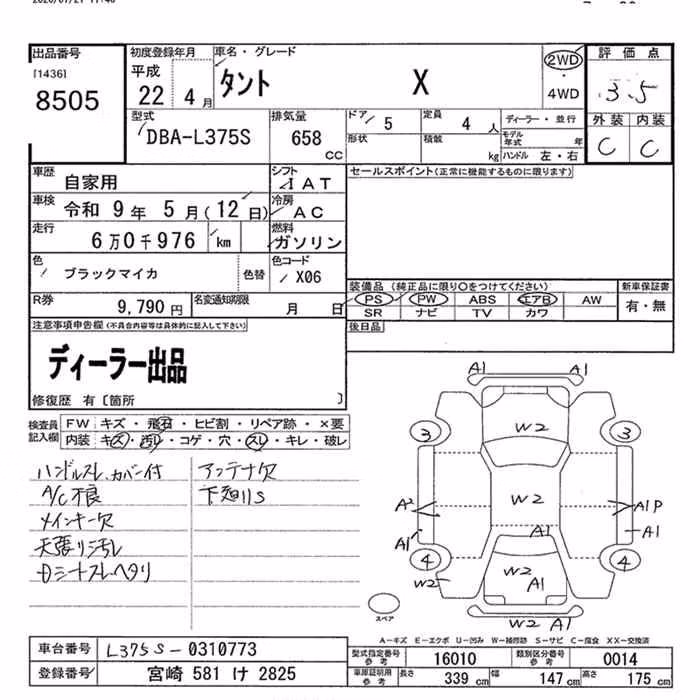 出品番号
[1436]
8505
初度登録年月
平成
22 4 月
車名・グレード
タント X
2WD
・
4WD
評価点
3.5
外装 内装
C C
型式
DBA-L375S
排気量
658
CC
ドア
5
定員
4 人
形状
積載
kg
ディーラー・並行
モデル
年式 年
ハンドル 左・右
車歴
自家用
シフト
IAT
車検
令和 9 年 5 月(12 日)
冷房
AC
走行
6万0千976 km
燃料
ガソリン
色
ブラックマイカ
色替
色コード
X06
R券
9,790 円
名変通知期限
月 日
セールスポイント(正常に機能するものに限ります)
装備品 (純正品に限り○をつけてください)
PS PW ABS エアB AW
SR ナビ TV カワ
新車保証書
有・無
後日品
注意事項申告欄(不具合内容等は具体的に記入して下さい)
ディーラー出品
修復歴 有〔箇所 〕
検査員
記入欄
FW キズ・飛石・ヒビ割・リペア跡・×要
内装 キズ・汚レ・コゲ・穴・スレ・キレ・破レ
ハンドルスレ、カバー付
A/C不良
メインキー欠
天張り汚レ
Dシートスレヘタリ
アンテナ欠
下廻りS
A1 A1
W2
3 3
W2
A2
A1P
A1
A1
A1
4 4
W2
W2
A1
W2 A1
スペア
A－キズ E－エクボ U－凹み W－補修跡 S－サビ C－腐食 XX－交換済
車台番号
L375S-0310773
登録番号
宮崎 581 け 2825
型式指定番号
参考
16010
類別区分番号
参考
0014
車庫証明用
参考
長さ
339 cm
幅
147 cm
高さ
175 cm